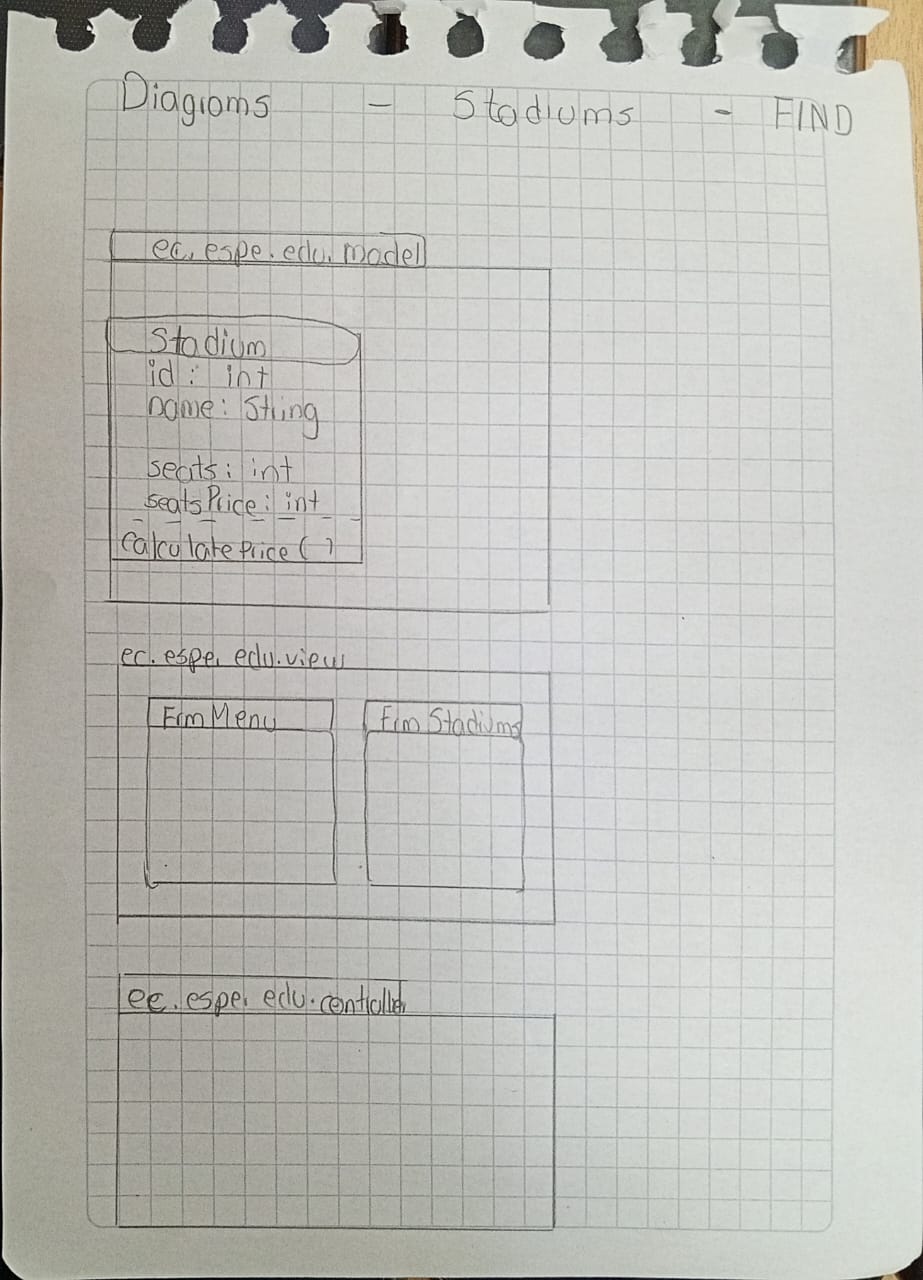 Diagrams - Stadiums - FIND
ec. espe. edu. model
Stadium
id : int
name: String
seats: int
seatsPrice: int
CalculatePrice ( )
ec. espe. edu. view
FrmMenu
Frm Stadiums
ec. espe. edu. controller